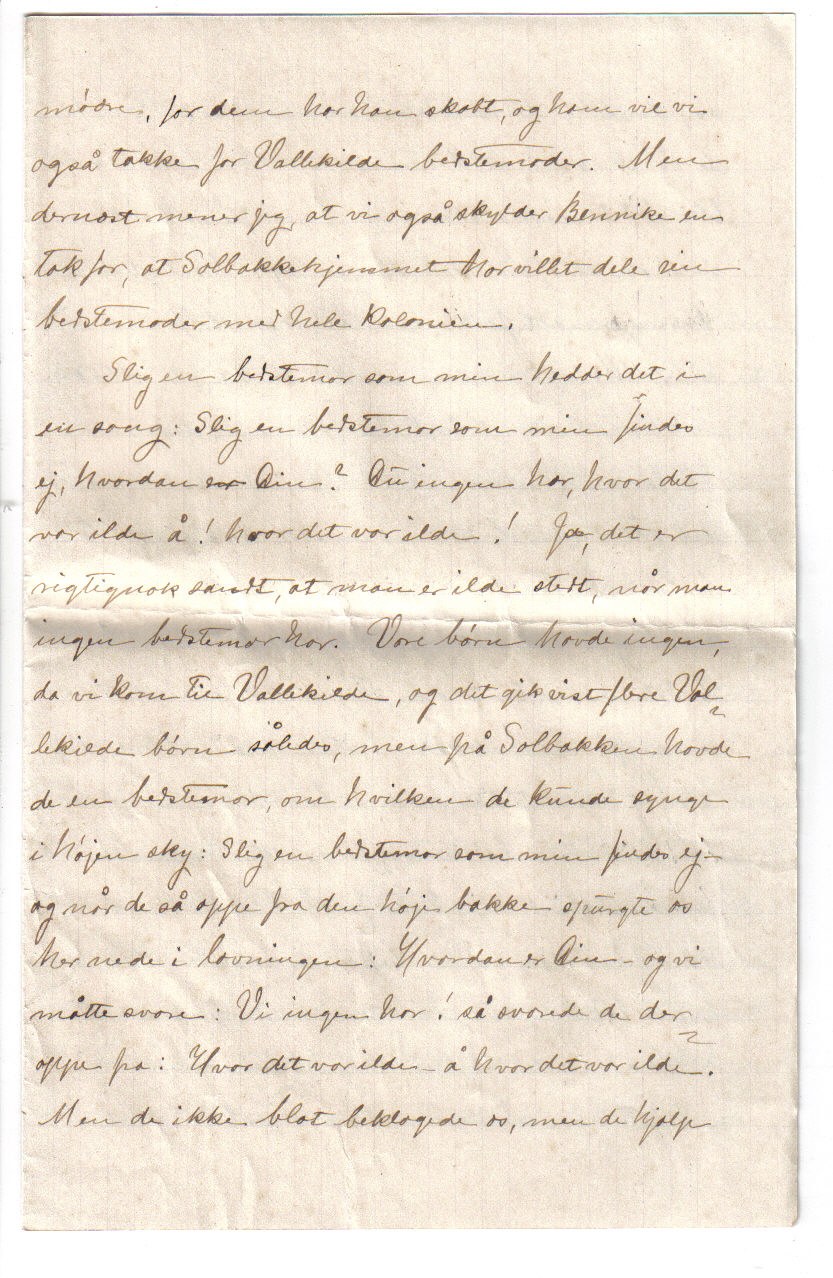 mødre, for dem har han skabt, og ham vil vi
også takke for Vallekilde bedstemoder. Men
dernæst mener jeg, at vi også skylder Bennike en
tak for, at Solbakkehjemmet har villet dele sin
bedstemoder med hele Kolonien.
Slig en bedstemor som min hedder det i
en sang: Slig en bedstemor som min findes
ej, hvordan er Din? Du ingen har, hvor det
var ilde å! hvor det var ilde! Ja, det er
rigtignok sandt, at man er ilde stedt, når man
ingen bedstemor har. Vore børn havde ingen,
da vi kom til Vallekilde, og det gik vist flere Val-
lekilde børn således, men på Solbakken havde
de en bedstemor, om hvilken de kunde synge
i højen sky: Slig en bedstemor som min findes ej -
og når de så oppe fra den høje bakke spurgte os
her nede i lavningen: Hvordan er Din - og vi
måtte svare: Vi ingen har! så svarede de der-
oppe fra: Hvor det var ilde - å hvor det var ilde.
Men de ikke blot beklagede os, men de hjalp